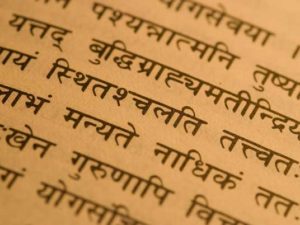 योगसेवया ।
पश्यन्नात्मनि तुष्य
यत्तद् बुद्धिग्राह्यमतीन्द्रिय
ायं स्थितश्चलति तत्त्वत
लाभं मन्यते नाधिकं तत
ःखेन गुरुणापि विच
गं योगसंज्ञि